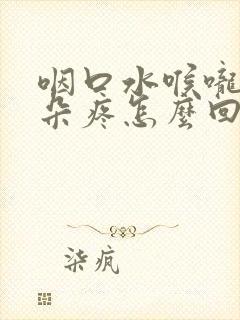 咽口水喉嚨
朵疼怎麼回
柒疯